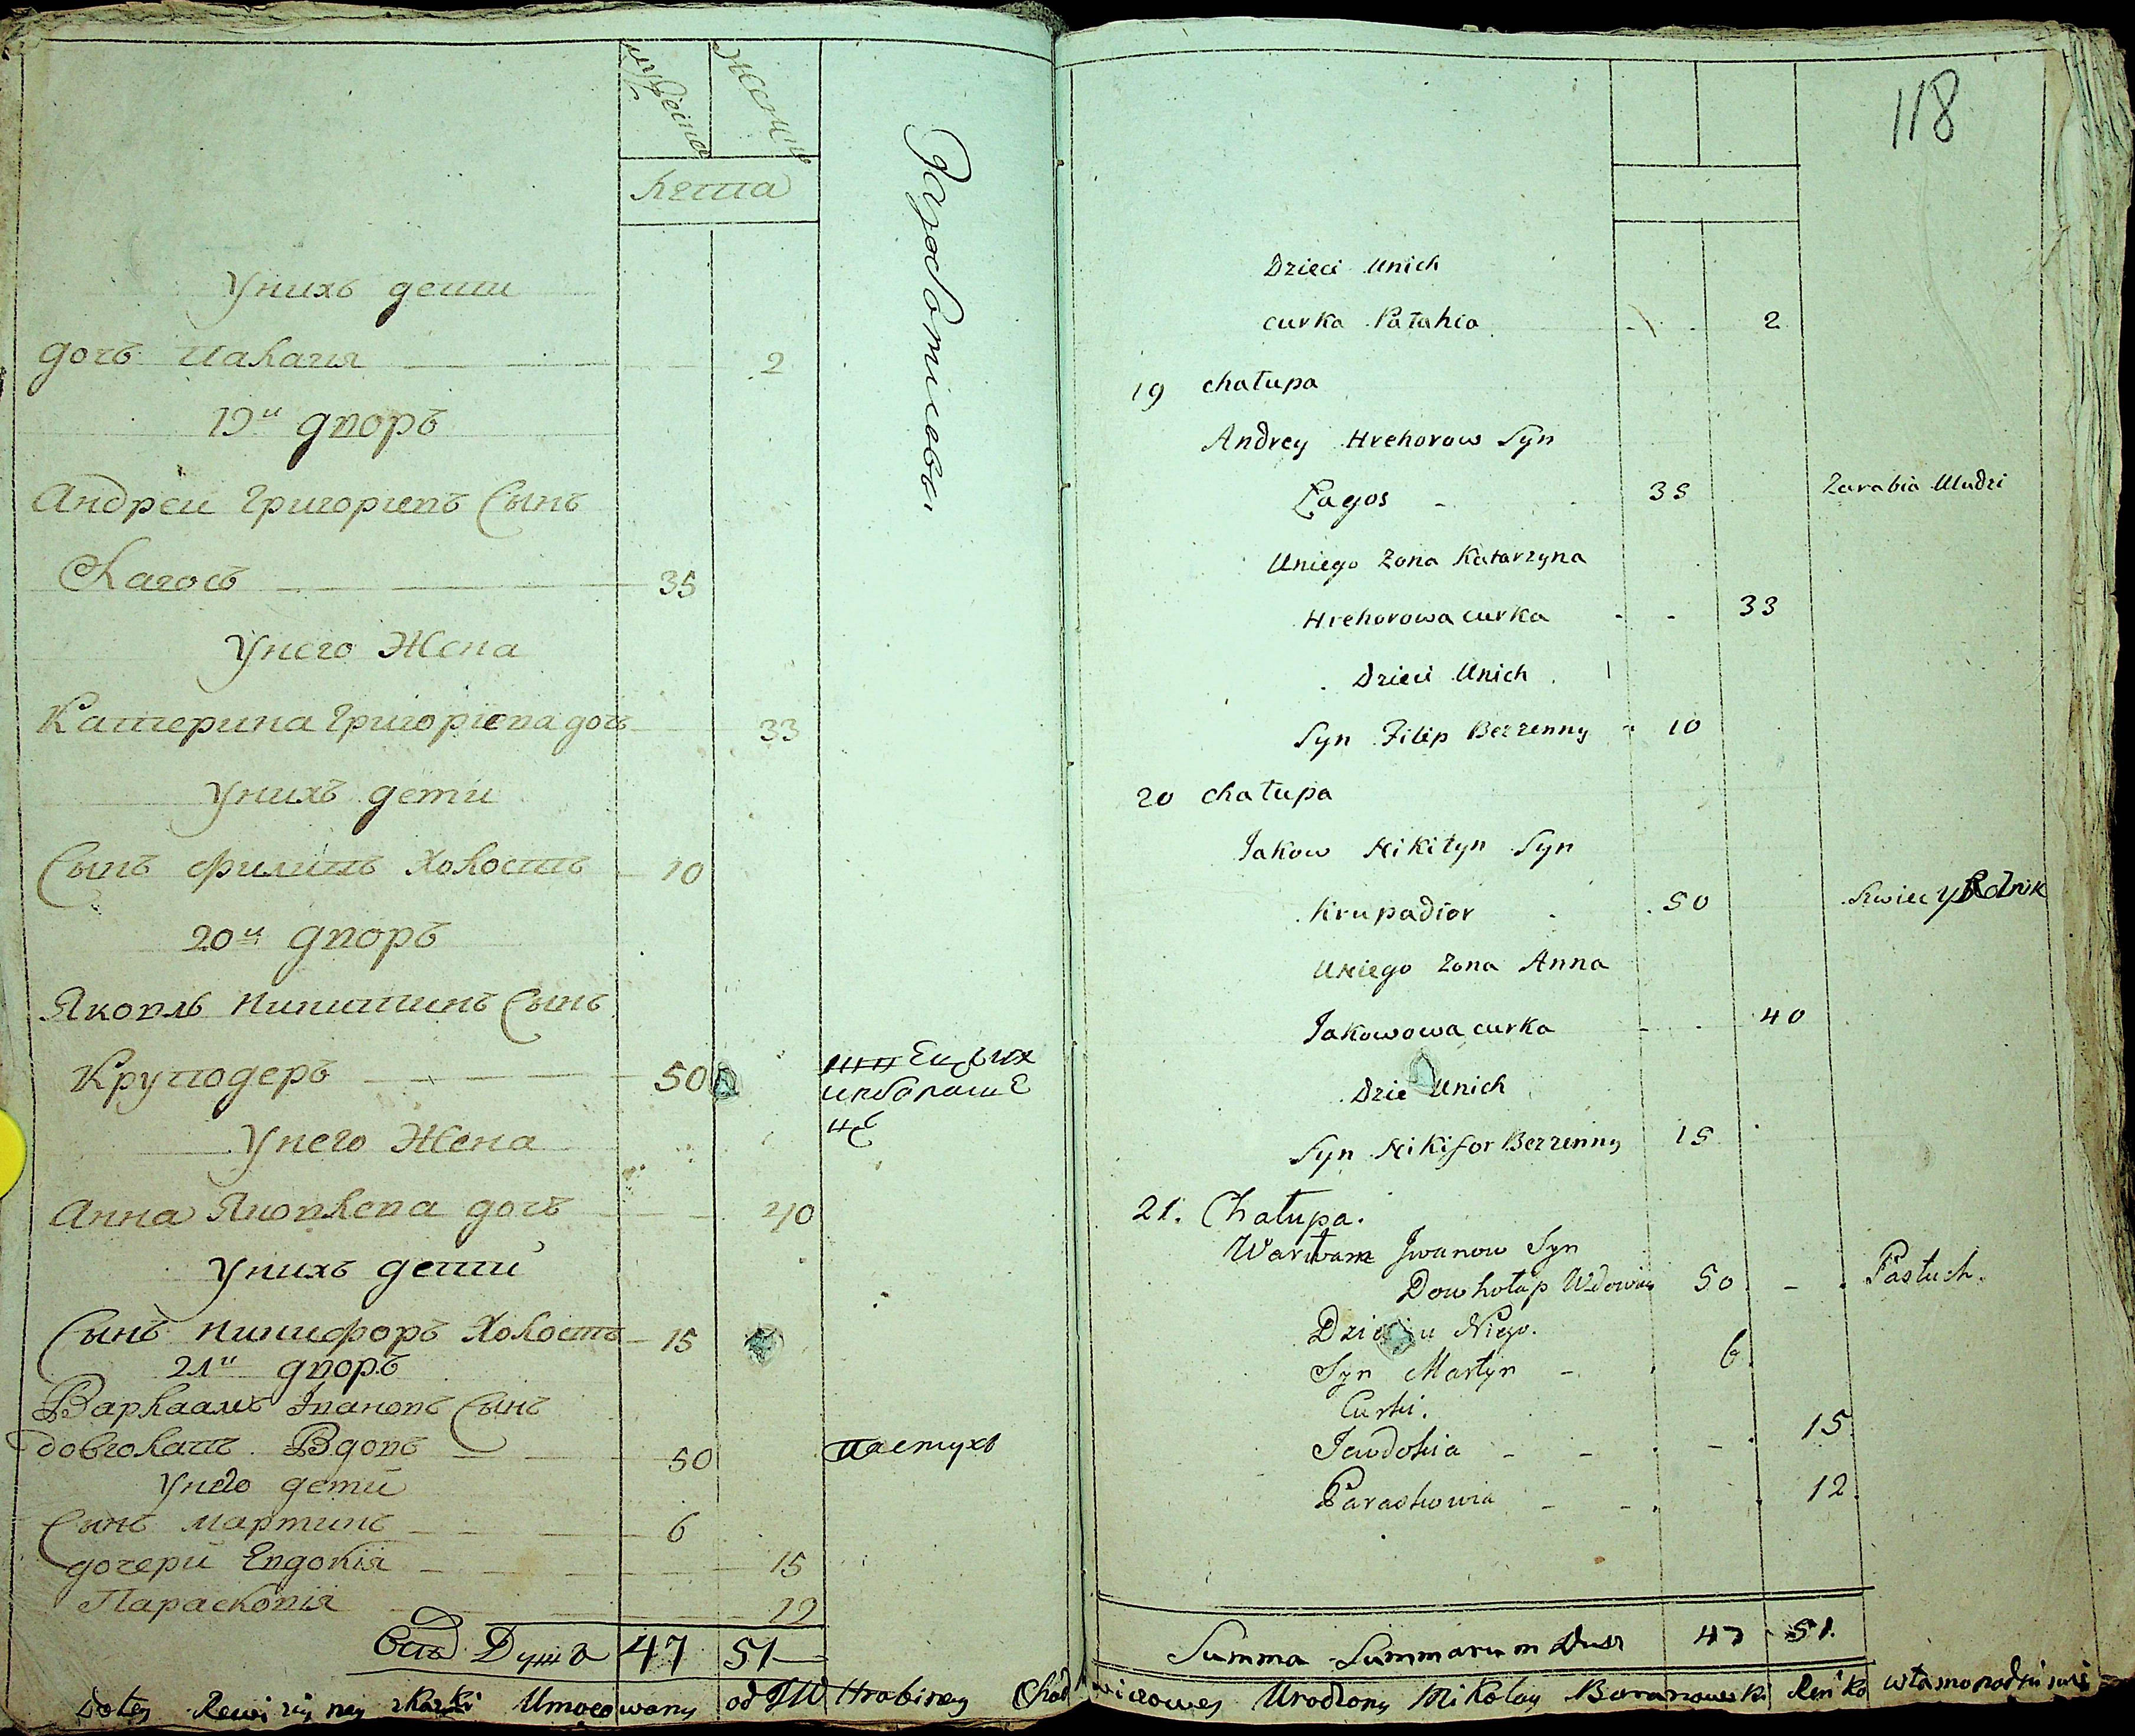 мужеска
женски
лета
Унихъ дети
дочъ палагия 2
19й дворъ
Андреи Григориевъ Сынъ
Лагосъ 35
Унего Жена
Катерина Григориева дочъ 33
Унихъ дети
Сынъ Филипъ Холостъ 10
20й дворъ
Яковль Никитинъ Сынъ
Круподеръ 50
Унего Жена
Анна Яковлева дочъ 40
Унихъ дети
Сынъ Никифоръ Холостъ 15
21й дворъ
Варлаамъ Iвановъ Сынъ
довголапъ Вдовъ 50 пастухъ
Унего дети
Сынъ мартинъ 6
дочери Евдокия 15
Парасковия 12
Душъ 47 51
118
Dzieci Unich
curka Pałahia 2
19 chałupa
Andrey Hrehorow Syn
Łagos 35 Zarabia
Uniego Zona Katarzyna
Hrehorowa curka 33
Dzieci Unich
Syn Filip Bezzenny 10
20 chałupa
Jakow Nikityn Syn
Krupadior 50
Uniego Zona Anna
Jakowowa curka 40
Dzie Unich
Syn Nikifor Bezzenny 15
21. Chałupa.
Warłam Jwanow Syn
Dowhołap Wdowiec 50 Pastuch.
Dzieci u Niego.
Syn Martyn 6.
Curki.
Jewdokia 15.
Paraskowia 12.
Summa Summarum Dusz 47 51.
Do tey Rewizyiney skazki Umocowany od JW Hrabiney Chodkiewiczowey Urodzony Mikołay Baranowski Ręką